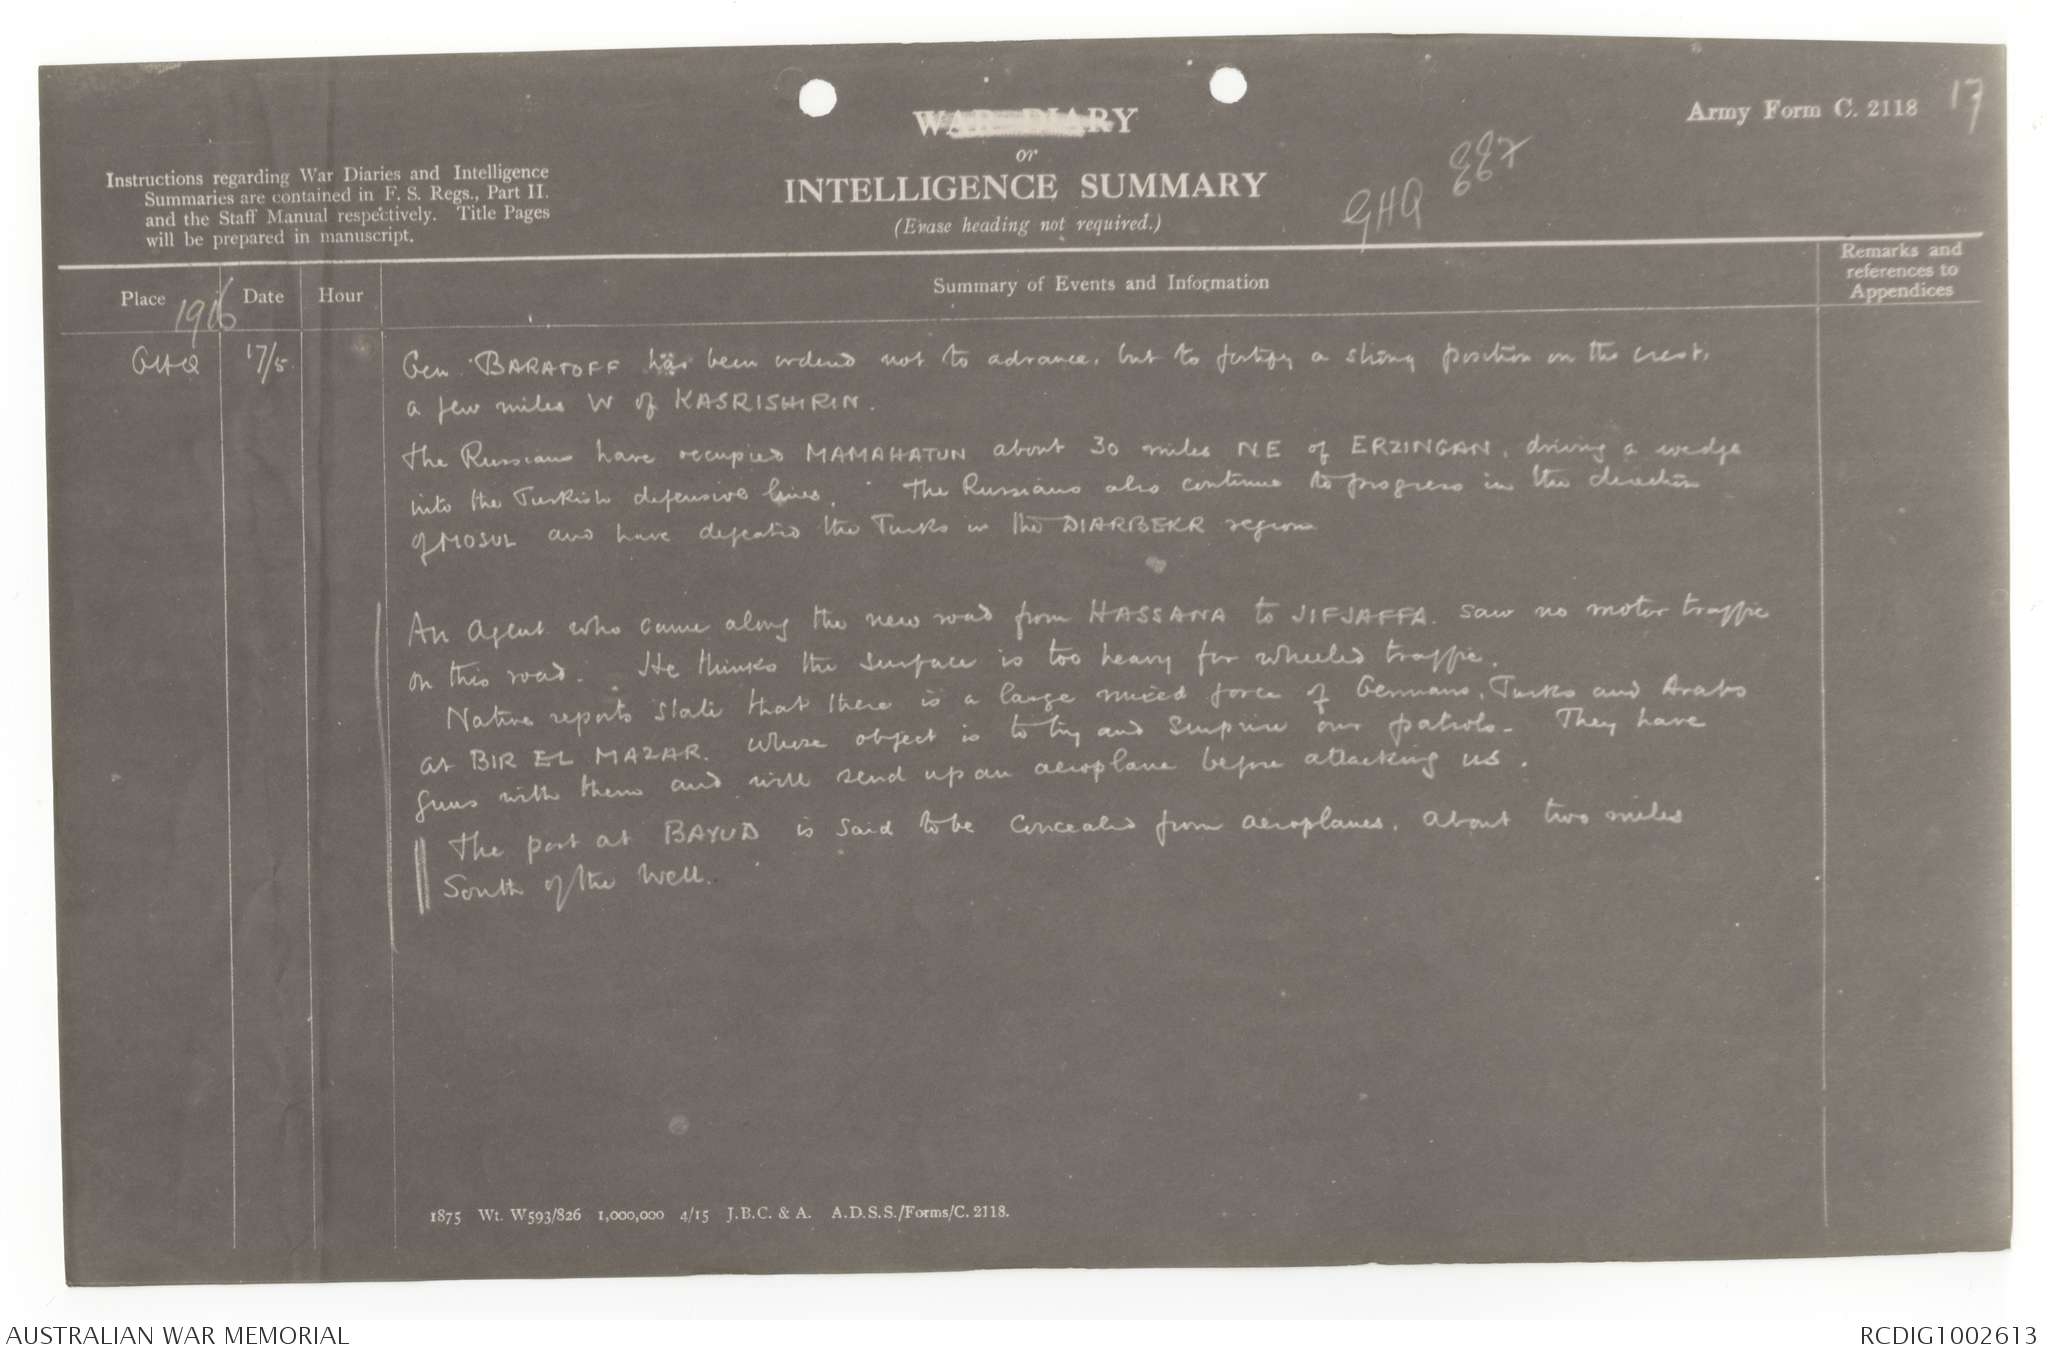 Army Form C. 2118
17
WAR DIARY
or
INTELLIGENCE SUMMARY
(Erase heading not required.)
GHQ EEF
Instructions regarding War Diaries and Intelligence
Summaries are contained in F. S. Regs., Part II.
and the Staff Manual respectively. Title Pages
will be prepared in manuscript.
Place
Date
Hour
Summary of Events and Information
Remarks and
references to
Appendices
1916
GHQ 17/5
Gen. BARATOFF has been ordered not to advance, but to fortify a strong position on the crest,
a few miles W of KASRISHIRIN.
The Russians have occupied MAMAHATUN about 30 miles NE of ERZINGAN, driving a wedge
into the Turkish defensive lines. The Russians also continue to progress in the direction
of MOSUL and have defeated the Turks in the DIARBEKR region
An Agent who came along the new road from HASSANA to JIFJAFFA. saw no motor traffic
on this road. He thinks the surface is too heavy for wheeled traffic.
Native reports state that there is a large mixed force of Germans, Turks and Arabs
at BIR EL MAZAR. whose object is to try and surprise our patrols. They have
guns with them and will send up an aeroplane before attacking us.
The post at BAYUD is said to be concealed from aeroplanes, about two miles
South of the Well.
1875 Wt. W593/826 1,000,000 4/15 J.B.C. & A. A.D.S.S./Forms/C. 2118.
AUSTRALIAN WAR MEMORIAL
RCDIG1002613